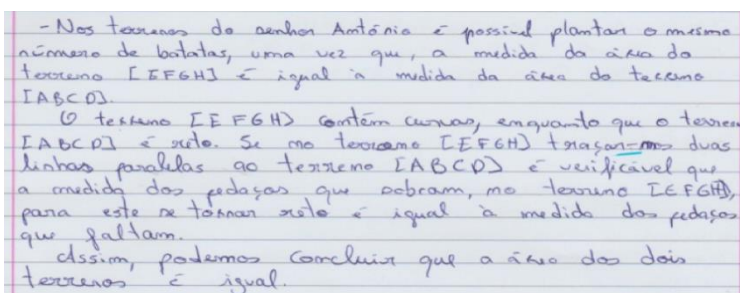 - Nos terrenos do senhor António é possível plantar o mesmo
número de batatas, uma vez que, a medida da área do
terreno [EFGH] é igual à medida da área do terreno
[ABCD].
O terreno [EFGH] contém curvas, enquanto que o terren
[ABCD] é reto. Se no terreno [EFGH] traçar-mos duas
linhas paralelas ao terreno [ABCD] é verificável que
a medida dos pedaços que sobram, no terreno [EFGH],
para este se tornar reto é igual à medida dos pedaços
que faltam.
Assim, podemos concluir que a área dos dois
terrenos é igual.